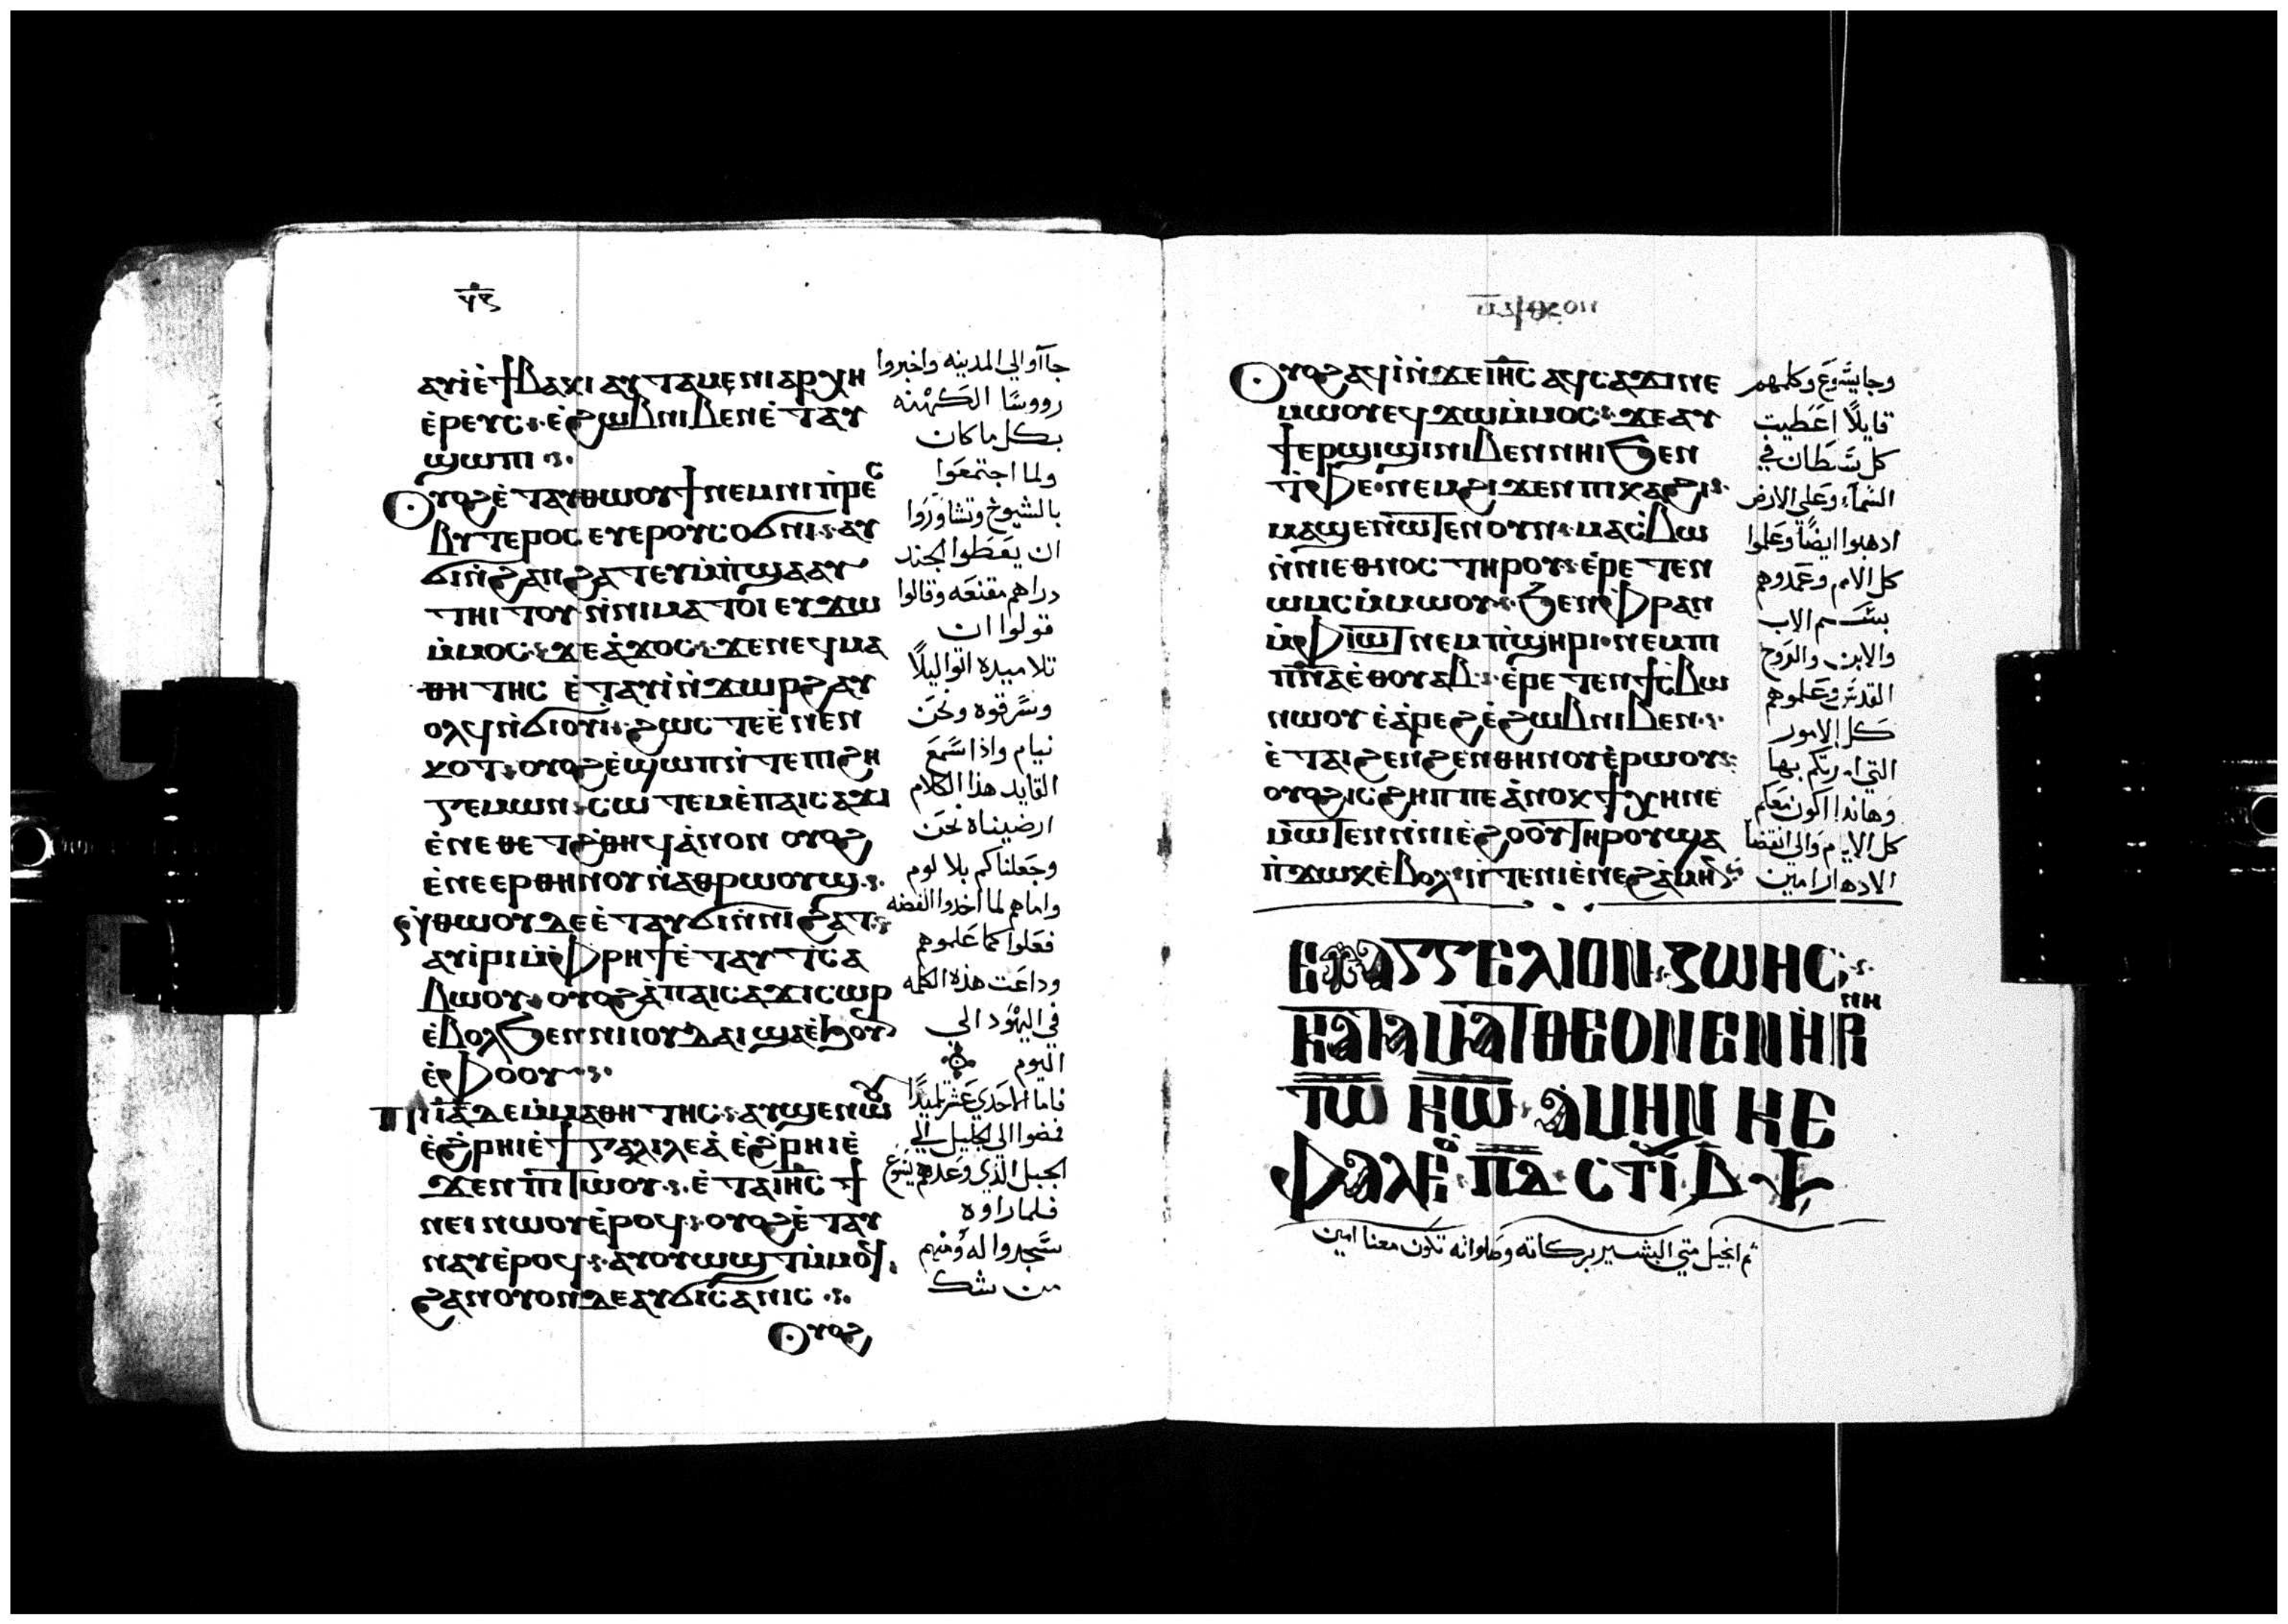 ⲁⲩⲓ̀ⲉ̀ϯⲃⲁⲕⲓ ⲁⲩⲧⲁⲙⲉⲛⲓⲁⲣⲭⲏ
ⲉ̀ⲣⲉⲩⲥ ⲉ̀ϩⲱⲃⲛⲓⲃⲉⲛⲉ̀ⲧⲁⲩ
ϣⲱⲡⲓ
ⲟⲩⲟϩⲉ̀ⲧⲁⲩⲑⲱⲟⲩϯⲛⲉⲙⲛⲓⲡ̀ⲣⲉⲥ
ⲃⲩⲧⲉⲣⲟⲥ ⲉⲩⲉⲣⲟⲩⲥⲟϭⲛⲓ ⲁⲩ
ϭⲓⲛ̀ϩⲁⲛϩⲁⲧⲉⲩⲙ̀ⲡ̀ϣⲁⲁⲩ
ⲧⲏⲓⲧⲟⲩ ⲛ̀ⲛⲓⲙⲁⲧⲟⲓ ⲉⲩϫⲱ
ⲙ̀ⲙⲟⲥ ϫⲉⲁ̀ϫⲟⲥ ϫⲉⲛⲉϥⲙⲁ
ⲑⲏⲧⲏⲥ ⲉ̀ⲧⲁⲩⲓ̀ⲛ̀ϫⲱⲣϩⲁⲩ
ⲟⲗϥⲛ̀ϭⲓⲟⲩⲓ̀ ϩⲱⲥⲧⲉⲉ̀ⲛⲉⲛ
ⲕⲟⲧ ⲟⲩⲟϩⲉ̀ϣⲱⲡⲛ̀ⲧⲉⲡⲓϩⲏ
ⲅⲉⲙⲱⲛ ⲥⲱⲧⲉⲙⲉ̀ⲡⲁⲓⲥⲁϫⲓ
ⲉ̀ⲛⲉⲑⲉⲧϩ̀ⲑⲏϥⲁ̀ⲛⲟⲛ ⲟⲩⲟϩ
ⲉ̀ⲛⲉⲉⲣⲑⲏⲛⲟⲩⲛ̀ⲁⲑⲣⲱⲟⲩϣ
ⲛ̀ⲑⲱⲟⲩⲇⲉⲉ̀ⲧⲁⲩϭⲓⲛ̀ⲛⲓϩⲁⲧ
ⲁⲩⲓ̀ⲣⲓⲙ̀ⲫⲣⲏϯⲉ̀ⲧⲁⲩⲧⲥⲁ
ⲃⲱⲟⲩ ⲟⲩⲟϩⲁ̀ⲡⲁⲓⲥⲁϫⲓⲥⲱⲣ
ⲉ̀ⲃⲟⲗϧⲉⲛⲛⲓⲓⲟⲩⲇⲁⲓϣⲁⲉ̀ϧⲟⲩⲛ
ⲉ̀ⲫⲟⲟⲩ
ⲡⲓⲓ̅ⲁ̅ⲇⲉⲙ̀ⲙⲁⲑⲏⲧⲏⲥ ⲁⲩϣⲉⲛⲱⲟⲩ
ⲉ̀ϩⲣⲏⲓⲉ̀ϯⲅⲁⲗⲓⲗⲉⲁ̀ ⲉ̀ϩⲣⲏⲓⲉ̀
ϫⲉⲛⲡⲓⲧⲱⲟⲩ ⲉ̀ⲧⲁⲓⲏ̅ⲥ̅ ϯ
ⲛⲉⲓⲛⲱⲟⲩⲉ̀ⲣⲟϥ ⲟⲩⲟϩⲉ̀ⲧⲁⲩ
ⲛⲁⲩⲉ̀ⲣⲟϥ ⲁⲩⲟⲩⲱϣⲧⲙ̀ⲙⲟϥ
ϩⲁⲛⲟⲩⲟⲛⲇⲉⲁⲩϭⲓⲥⲁⲛⲓⲥ
ⲟⲩⲟϩ
جاآو الي المدينه واخبروا
رووسًا الكهنه
بكل ما كان
ولما اجتمعوا
بالشيوخ وتشاوروا
ان يعطوا الجند
دراهم مقنعه وقالوا
قولوا ان
تلاميده اتوا ليلًا
وسرقوه ونحن
نيام واذا سمع
القايد هذا الكلام
ارضيناه نحن
وجعلناكم بلا لوم
واماهم لما اخدوا الفضه
فعلوا كما علموهم
وداعت هذه الكلمه
في اليهود الي
اليوم
فاما الاحدي عشر تلميدًا
فمضوا الي الجليل الي
الجبل الذي وعدهم يسوع
فلما راوه
سجدوا له ومنهم
من شك
ⲟⲩⲟϩⲁϥⲓ̀ⲛ̀ϫⲉⲓⲏ̅ⲥ̅ ⲁϥⲥⲁϫⲓⲛⲉ
ⲙⲱⲟⲩⲉϥϫⲱⲙ̀ⲙⲟⲥ ϫⲉⲁⲩ
ϯⲉⲣϣⲓϣⲓⲛⲓⲃⲉⲛⲛⲏⲓϧⲉⲛ
ⲧ̀ⲫⲉ ⲛⲉⲙϩⲓϫⲉⲛⲡⲓⲕⲁϩⲓ
ⲙⲁϣⲉⲛⲱⲧⲉⲛⲟⲩⲛ ⲙⲁⲥ̀ⲃⲱ
ⲛ̀ⲛⲓⲉⲑⲛⲟⲥ ⲧⲏⲣⲟⲩ ⲉ̀ⲣⲉⲧⲉⲛ
ⲱⲙⲥⲙ̀ⲙⲱⲟⲩ ϧⲉⲛⲫⲣⲁⲛ
ⲙ̀ⲫⲓⲱⲧⲛⲉⲙⲡ̀ϣⲏⲣⲓ ⲛⲉⲙⲡ
ⲡ̅ⲛ̅ⲁ̅ⲉ̀ⲑⲟⲩⲁⲃ ⲉ̀ⲣⲉⲧⲉⲛϯⲥ̀ⲃⲱ
ⲛⲱⲟⲩ ⲉ̀ⲁ̀ⲣⲉϩⲉ̀ϩⲱⲃⲛⲓⲃⲉⲛ
ⲉ̀ⲧⲁⲓϩⲉⲛϩⲉⲛⲑⲏⲛⲟⲩⲉ̀ⲣⲱⲟⲩ
ⲟⲩⲟϩⲓⲥϩⲏⲡⲡⲉⲁ̀ⲛⲟⲕϯⲭⲏⲛⲉ
ⲙⲱⲧⲉⲛⲛ̀ⲛⲓⲉ̀ϩⲟⲟⲩⲧⲏⲣⲟⲩϣⲁ
ⲡ̀ϫⲱⲕⲉ̀ⲃⲟⲗⲛ̀ⲧⲉⲛⲓⲉ̀ⲛⲉϩⲁ̀ⲙⲏⲛ
وجا يسوع وكلمهم
قايلًا اعطيت
كل سلطان في
السمآء وعلي الارض
ادهبوا ايضًا وعلموا
كل الامم وعمدوهم
بسم الاب
والابن والروح
القدس وعلموهم
كل الامور
التي امرتكم بها
وهاندا اكون معكم
كل الايام والي انقضا
الادهار امين
ⲉⲩⲁⲅⲅⲉⲗⲓⲟⲛ ⲍⲱⲏⲥ
ⲕⲁⲧⲁⲙⲁⲧⲑⲉⲟⲛ ⲉⲛⲏⲣⲏⲛⲏ
ⲧⲱ ⲕⲱ ⲁⲙⲏⲛ ⲕⲉ
ⲫⲁⲗⲉ ⲡ̅ⲇ̅ ⲥⲧⲓ
تم انجيل متي البشير بركاته وصلواته تكون معنا امين